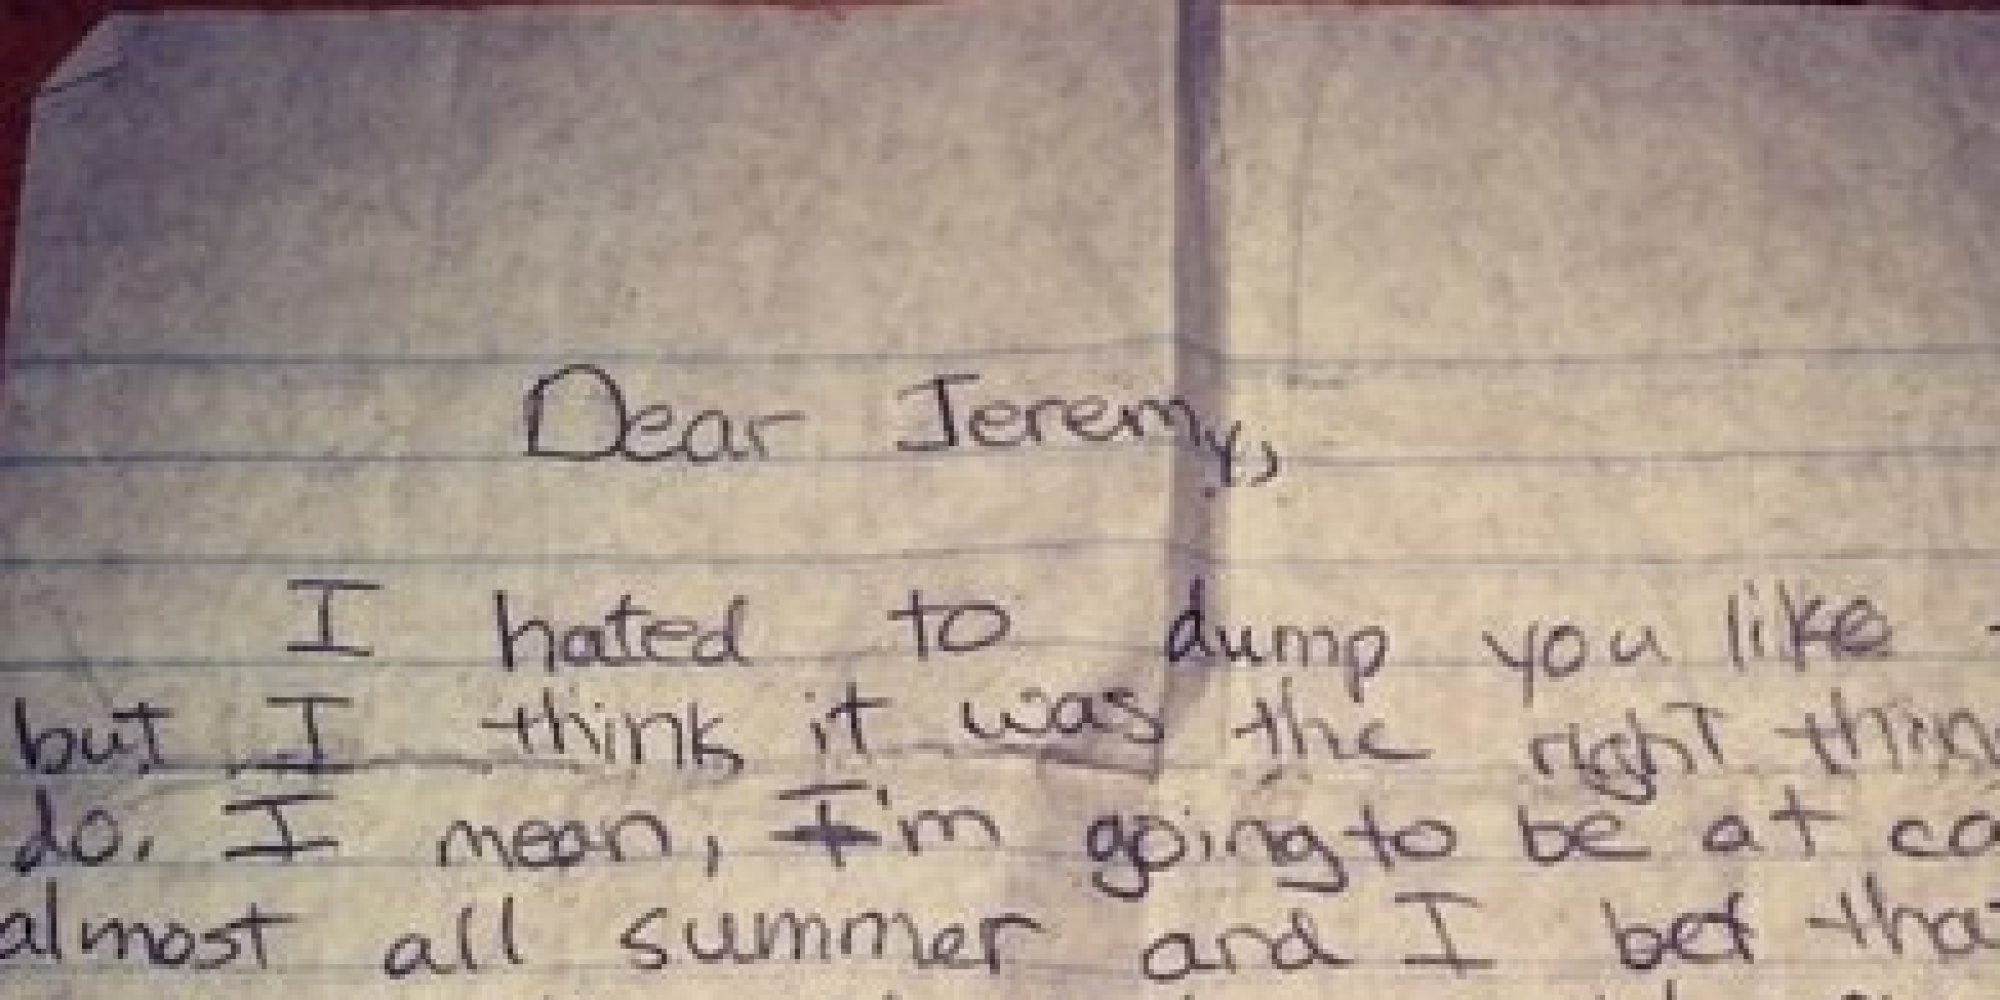 Dear Jeremy,
I hated to dump you like
but I think it was the right thing
do. I mean, I'm going to be at
almost all summer and I bet that